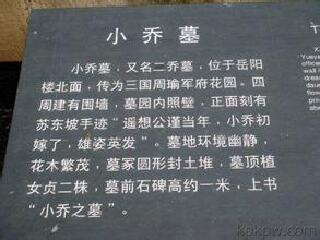 小乔墓
小乔墓，又名二乔墓，位于岳阳
楼北面，传为三国周瑜军府花园。四
周建有围墙，墓园内照壁，正面刻有
苏东坡手迹“遥想公谨当年，小乔初
嫁了，雄姿英发”。墓地环境幽静，
花木繁茂，墓冢圆形封土堆，墓顶植
女贞二株，墓前石碑高约一米，上书
“小乔之墓”。